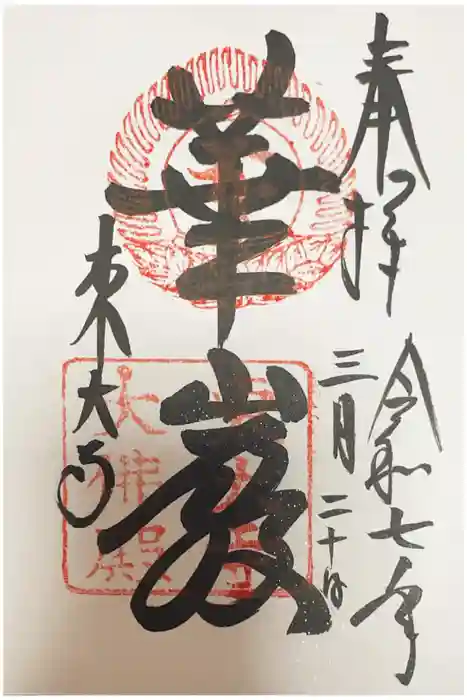 奉拝
令和七年
三月二十日
華厳
東大寺